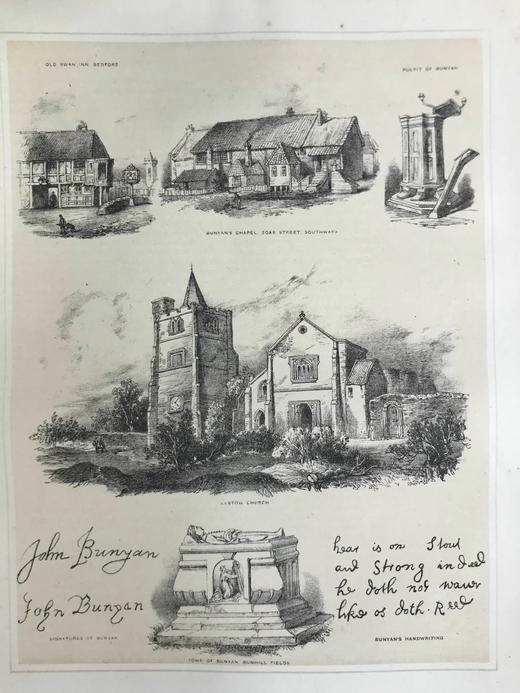 OLD SWAN INN, BEDFORD
PULPIT OF BUNYAN
BUNYAN'S CHAPEL, ZOAR STREET, SOUTHWARK
ELSTOW CHURCH
John Bunyan
John Bunyan
SIGNATURES OF BUNYAN
TOMB OF BUNYAN BUNHILL FIELDS
hear is on Stout
and Strong indeed
he doth not waver
like as doth. Reed
BUNYAN'S HANDWRITING